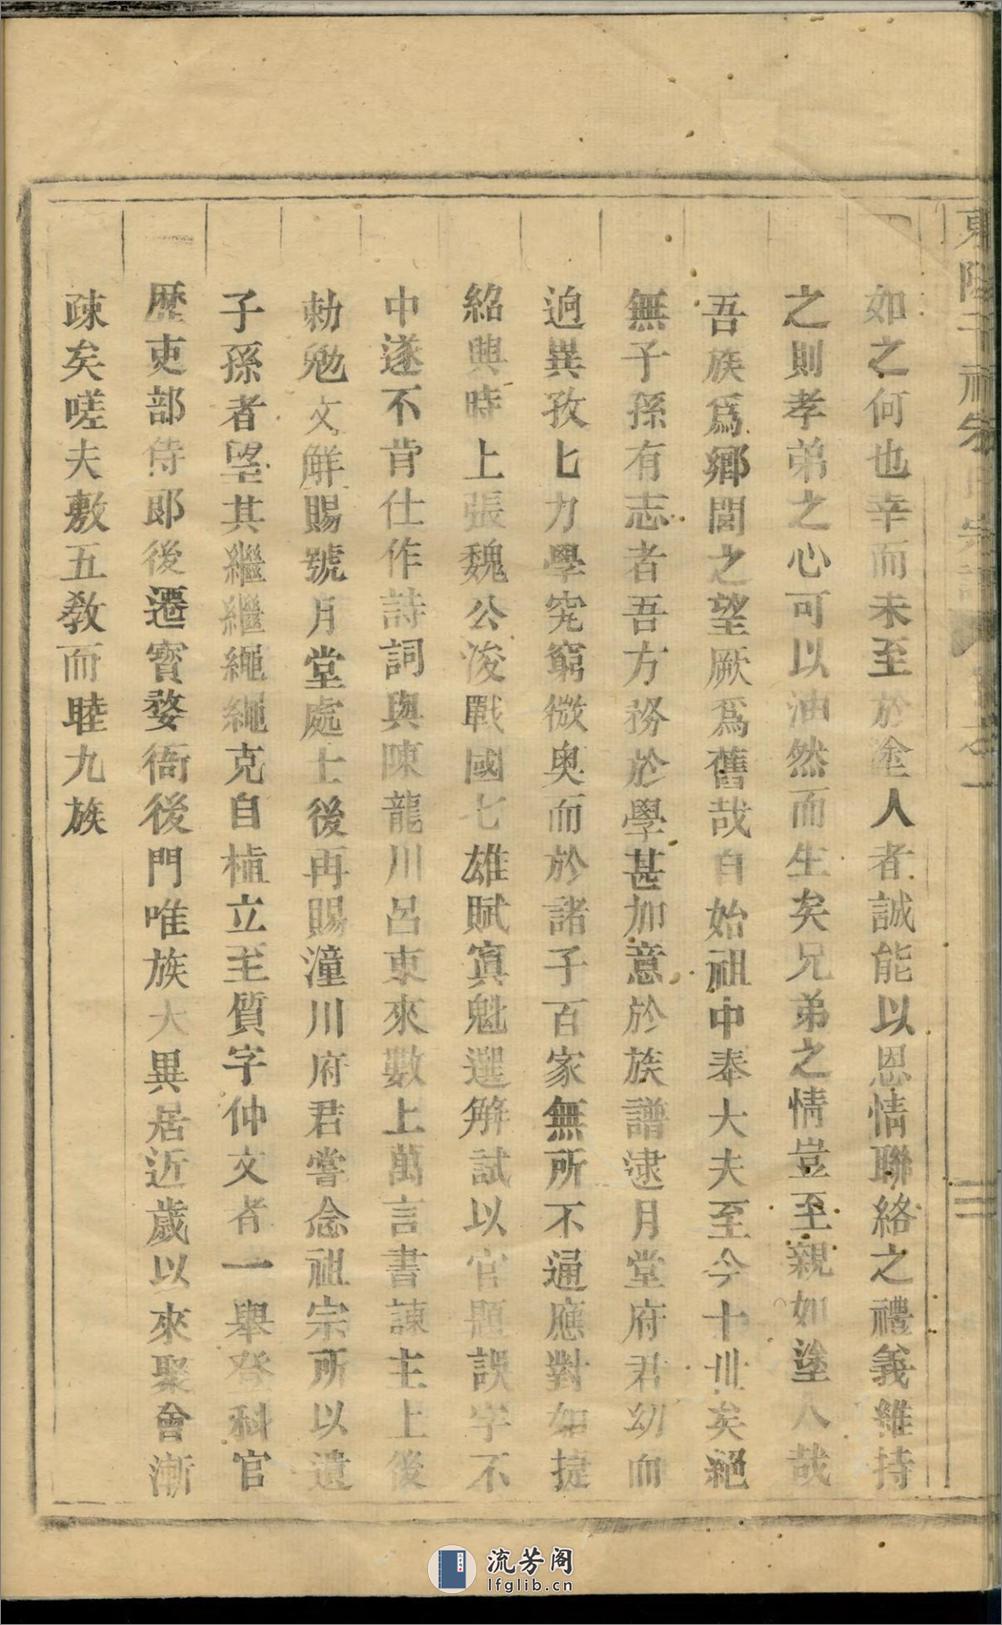 如之何也幸而未至於塗人者誠能以恩情聯絡之禮義維持
之則孝弟之心可以油然而生矣兄弟之情豈至親如塗人哉
吾族爲鄉閭之望厥爲舊哉自始祖中奉大夫至今十世矣絕
無子孫有志者吾方務於學甚加意於族譜逮月堂府君幼而
逈異孜匕力學究窮微奥而於諸子百家無所不通應對如捷
紹興時上張魏公浚戰國七雄賦寘魁選解試以官題誤字不
中遂不肯仕作詩詞與陳龍川呂東來數上萬言書諫主上後
勅勉文解賜號月堂處士後再賜潼川府君嘗念祖宗所以遺
子孫者望其繼繼繩繩克自植立至質字仲文者一舉登科官
歷吏部侍郎後遷寳婺衙後門唯族大異居近歲以來聚會漸
疎矣嗟夫敷五教而睦九族
東陽 祠宋氏宗譜
二
流芳阁
lfglib.cn